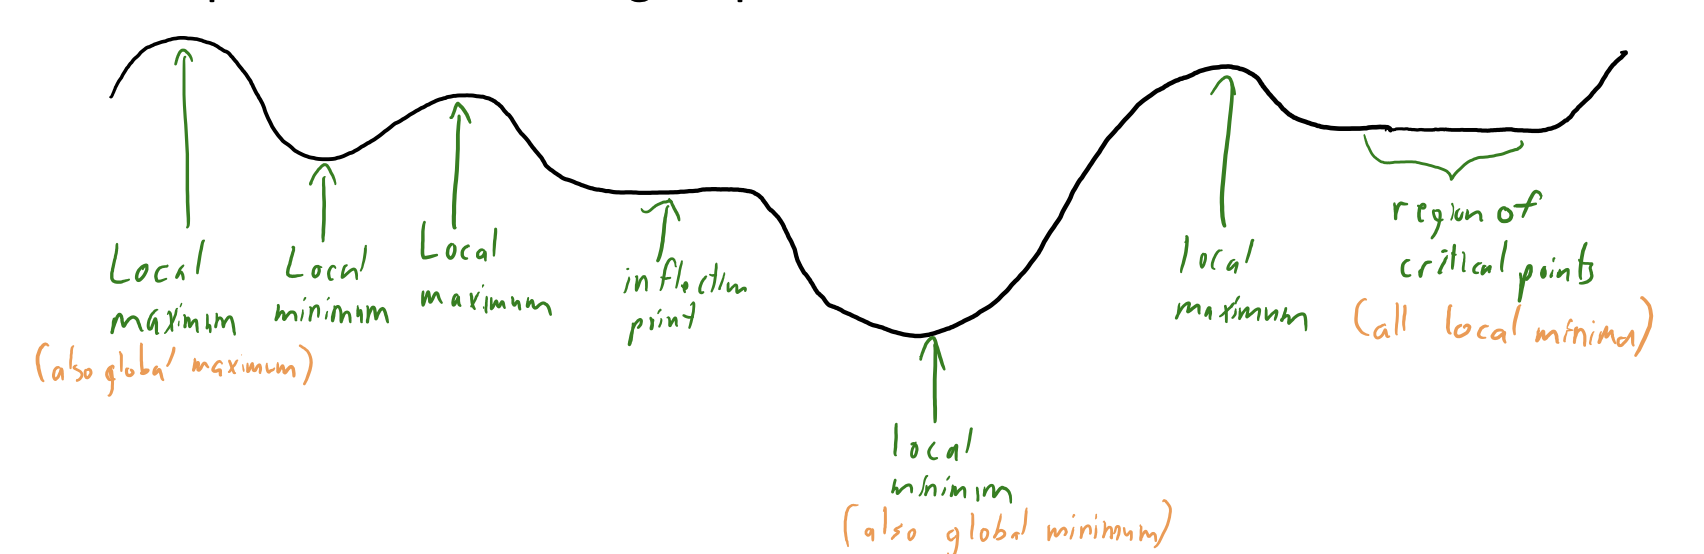 Local
maximum
(also global maximum)
Local
minimum
Local
maximum
inflection
point
local
minimum
(also global minimum)
local
maximum
region of
critical points
(all local minima)